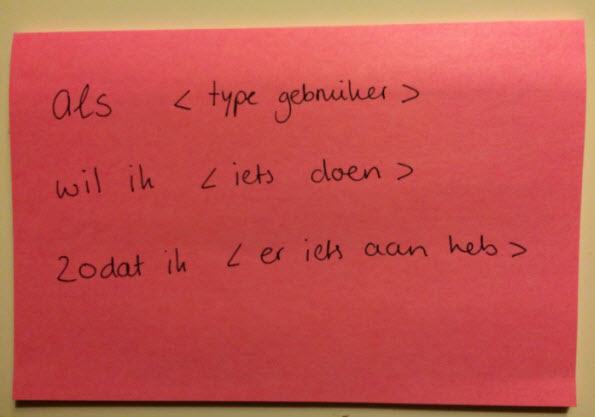 als < type gebruiker >
wil ik < iets doen >
zodat ik < er iets aan heb >